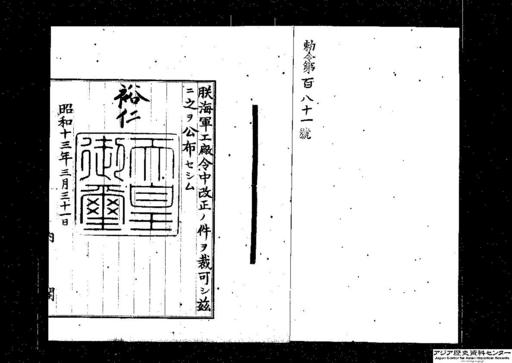 勅令第百八十一號
朕海軍工廠令中改正ノ件ヲ裁可シ茲
ニ之ヲ公布セシム
裕仁
天皇
御璽
昭和十三年三月三十一日
内閣
アジア歴史資料センター
Japan Center for Asian Historical Records